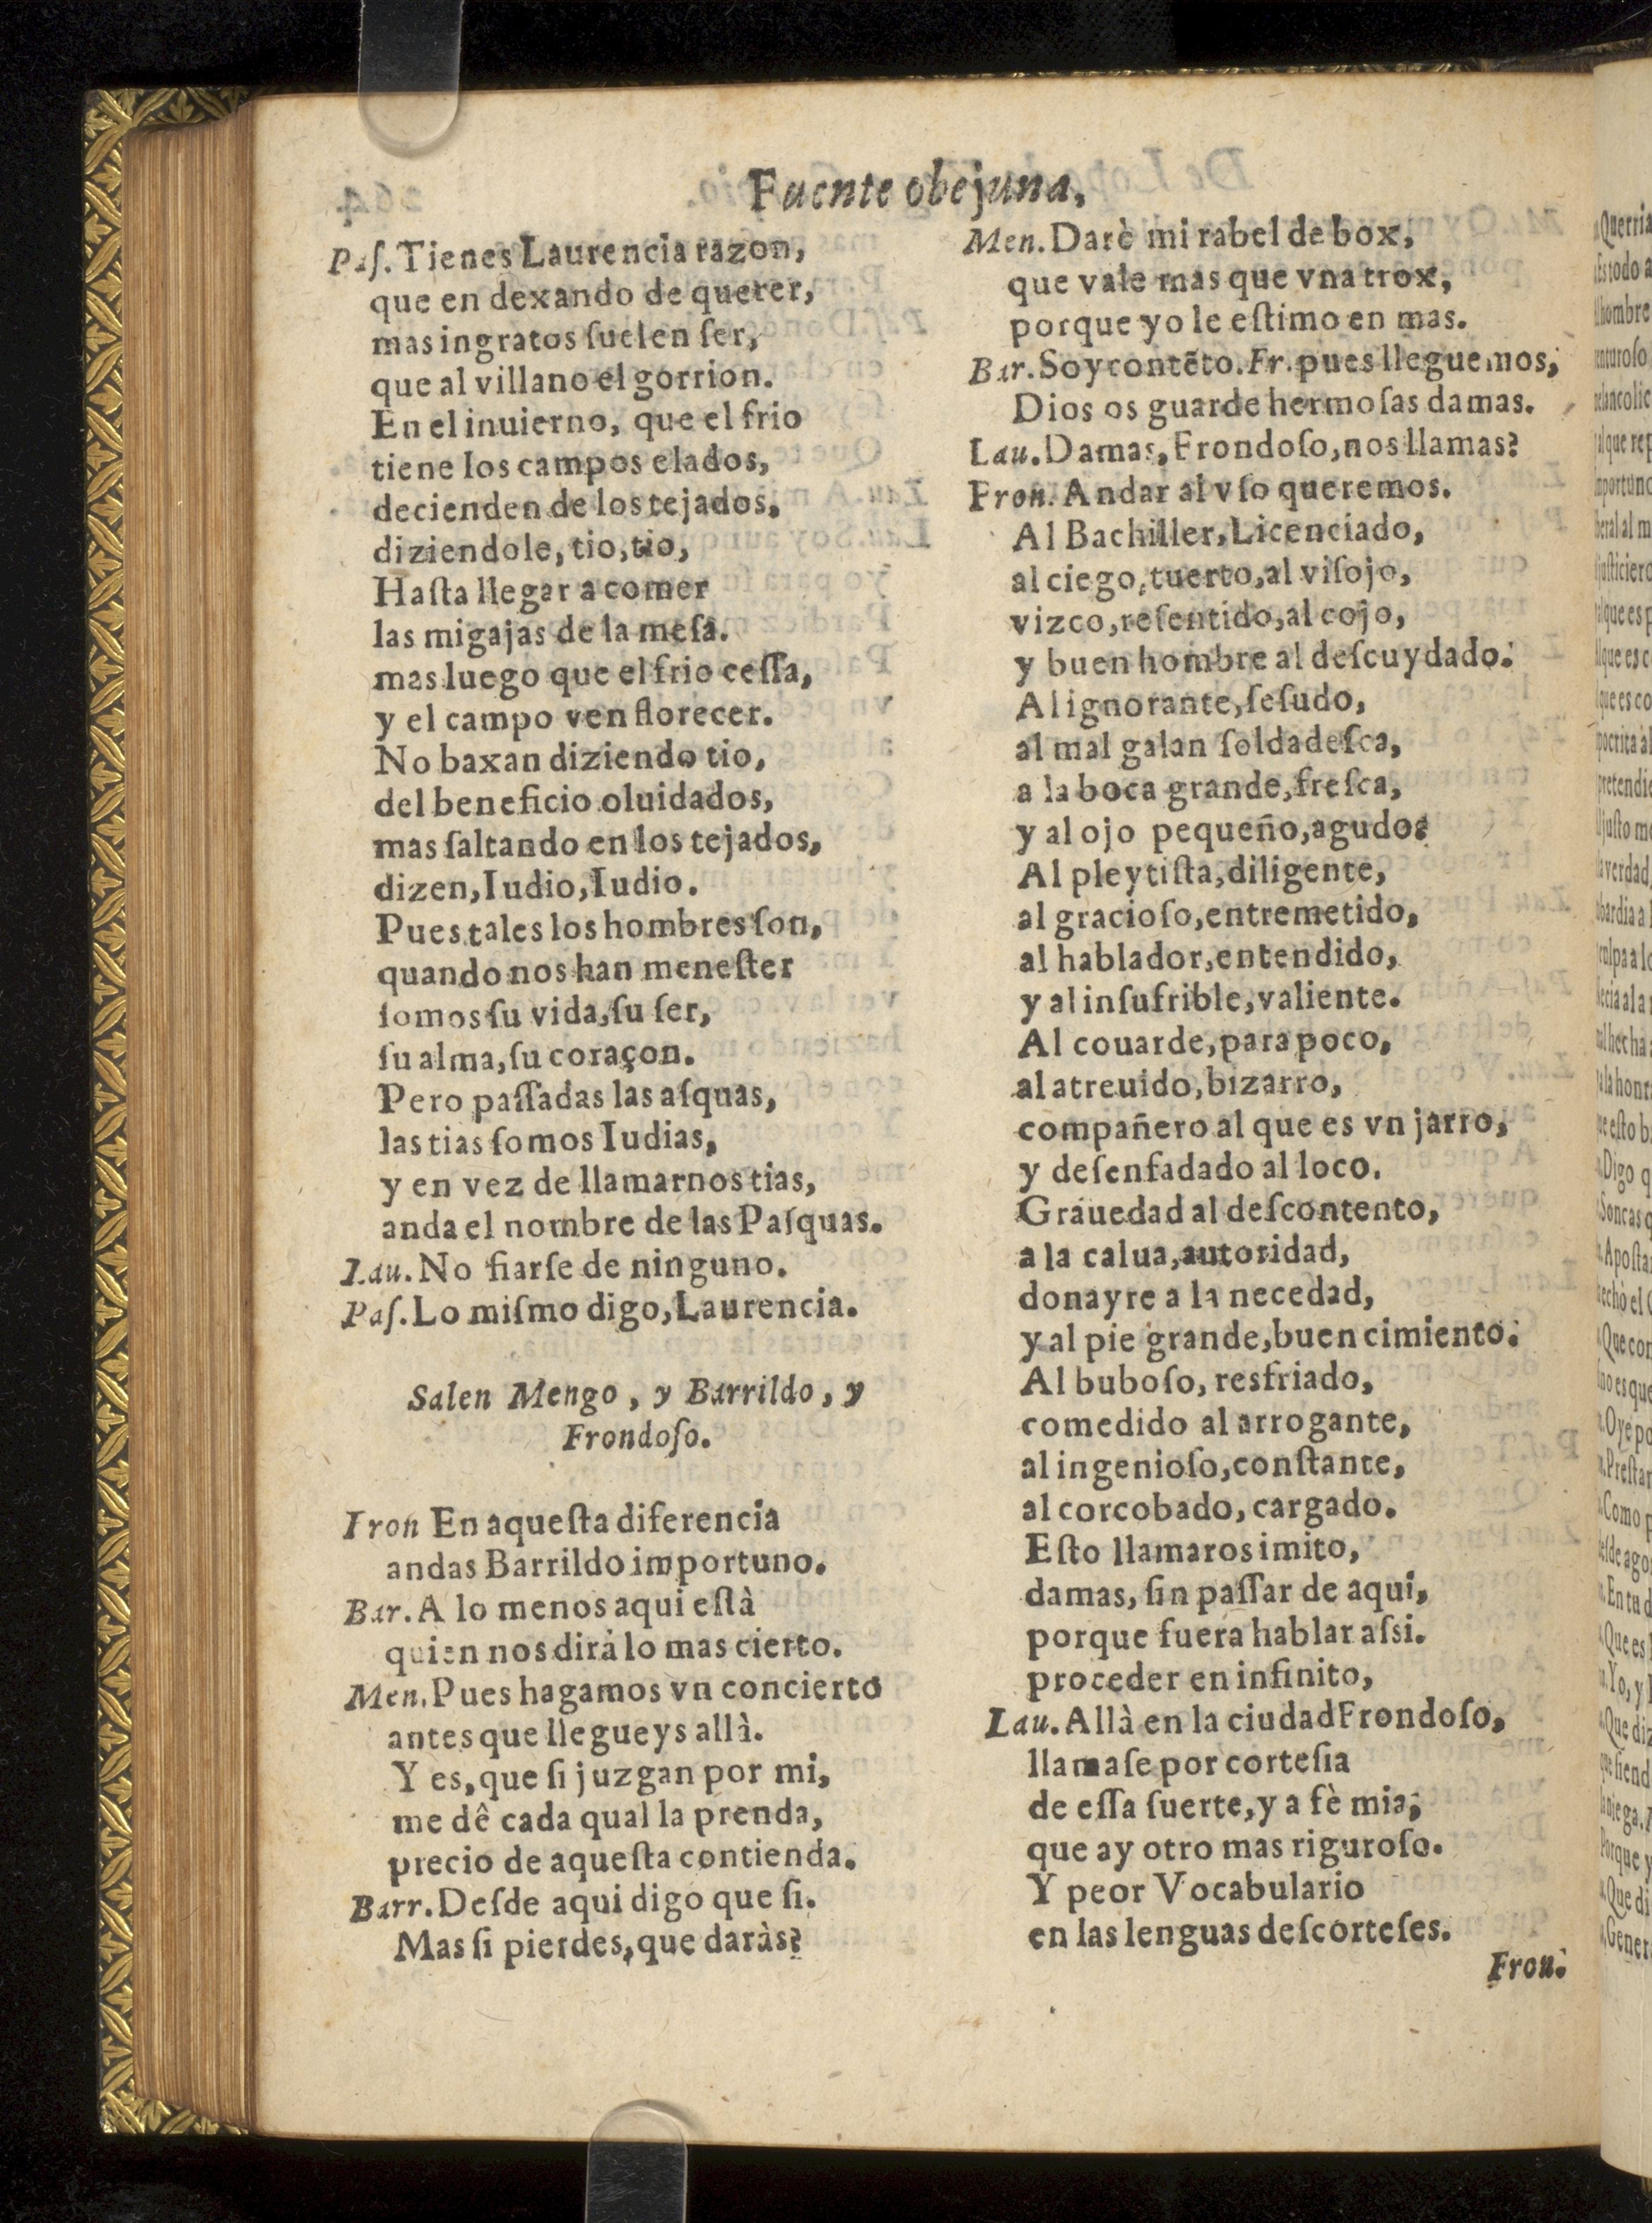 Fuente obejuna,
Paſ. Tienes Laurencia razon,
que en dexando de querer,
mas ingratos ſuelen ſer,
que al villano el gorrion.
En el inuierno, que el frio
tiene los campos elados,
decienden de los tejados,
diziendole, tio, tio,
Haſta llegar a comer
las migajas de la meſa.
mas luego que el frio ceſſa,
y el campo ven florecer.
No baxan diziendo tio,
del beneficio oluidados,
mas ſaltando en los tejados,
dizen, Iudio, Iudio.
Pues tales los hombres ſon,
quando nos han meneſter
ſomos ſu vida, ſu ſer,
ſu alma, ſu coraçon.
Pero paſſadas las aſquas,
las tias ſomos Iudias,
y en vez de llamarnos tias,
anda el nombre de las Paſquas.
Lau. No fiarſe de ninguno.
Paſ. Lo miſmo digo, Laurencia.
Salen Mengo, y Barrildo, y
Frondoſo.
Fron En aqueſta diferencia
andas Barrildo importuno.
Bar. A lo menos aqui eſtà
quien nos dirà lo mas cierto.
Men. Pues hagamos vn concierto
antes que llegueys allà.
Y es, que ſi juzgan por mi,
me dê cada qual la prenda,
precio de aqueſta contienda.
Barr. Deſde aqui digo que ſi.
Mas ſi pierdes, que daràs?
Men. Darè mi rabel de box,
que vale mas que vna trox,
porque yo le eſtimo en mas.
Bar. Soy contẽto. Fr. pues lleguemos,
Dios os guarde hermoſas damas.
Lau. Damas, Frondoſo, nos llamas?
Fron. Andar al vſo queremos.
Al Bachiller, Licenciado,
al ciego, tuerto, al viſojo,
vizco, reſentido, al cojo,
y buen hombre al deſcuydado.
Al ignorante, ſeſudo,
al mal galan ſoldadeſca,
a la boca grande, freſca,
y al ojo pequeño, agudo:
Al pleytiſta, diligente,
al gracioſo, entremetido,
al hablador, entendido,
y al inſufrible, valiente.
Al couarde, para poco,
al atreuido, bizarro,
compañero al que es vn jarro,
y deſenfadado al loco.
Grauedad al deſcontento,
a la calua, autoridad,
donayre a la necedad,
y al pie grande, buen cimiento.
Al buboſo, resfriado,
comedido al arrogante,
al ingenioſo, conſtante,
al corcobado, cargado.
Eſto llamaros imito,
damas, ſin paſſar de aqui,
porque fuera hablar aſsi.
proceder en infinito,
Lau. Allà en la ciudad Frondoſo,
llamaſe por corteſia
de eſſa ſuerte, y a fè mia,
que ay otro mas riguroſo.
Y peor Vocabulario
en las lenguas deſcorteſes.
Fron.